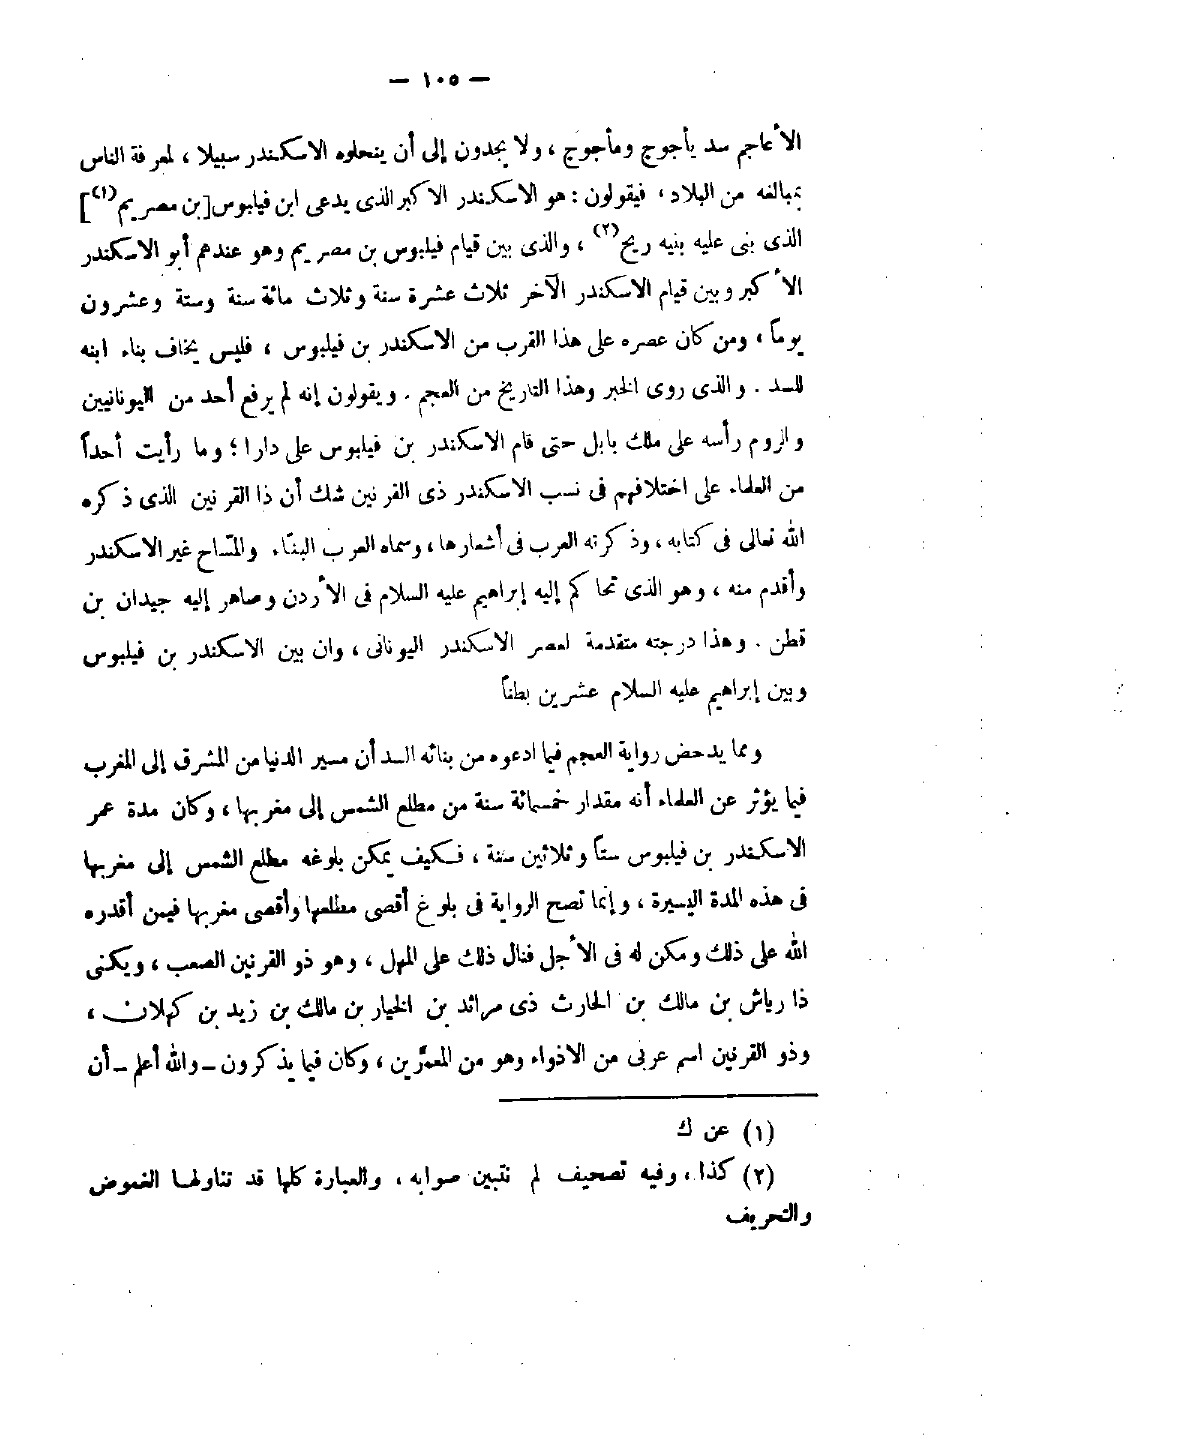 — ١٠٥ —
الأعاجم سد يأجوج ومأجوج ، ولا يجدون إلى أن ينحلوه الاسكندر سبيلا ، لمعرفة الناس
بمبالغه من البلاد ، فيقولون : هو الاسكندر الاكبر الذى يدعى ابن فيلبوس [بن مصريم (١)]
الذى بنى عليه بنيه ريح (٢) ، والذى بين قيام فيلبوس بن مصريم وهو عندهم أبو الاسكندر
الأكبر وبين قيام الاسكندر الآخر ثلاث عشرة سنة وثلاث مائة سنة وستة وعشرون
يوماً ، ومن كان عصره على هذا القرب من الاسكندر بن فيلبوس ، فليس يخاف بناء ابنه
للسد . والذى روى الخبر وهذا التاريخ من العجم . ويقولون إنه لم يرفع أحد من اليونانيين
والروم رأسه على ملك بابل حتى قام الاسكندر بن فيلبوس على دارا ؛ وما رأيت أحداً
من العلماء على اختلافهم فى نسب الاسكندر ذى القرنين شك أن ذا القرنين الذى ذكره
الله تعالى فى كتابه ، وذكرته العرب فى أشعارها ، وسماه العرب البنّاء والمسّاح غير الاسكندر
وأقدم منه ، وهو الذى تحاكم إليه إبراهيم عليه السلام فى الأردن وصاهر إليه جيدان بن
قطن . وهذا درجته متقدمة لعصر الاسكندر اليونانى ، وان بين الاسكندر بن فيلبوس
وبين إبراهيم عليه السلام عشرين بطناً
ومما يدحض رواية العجم فيما ادعوه من بنائه السد أن مسير الدنيا من المشرق إلى المغرب
فيما يؤثر عن العلماء أنه مقدار خمسمائة سنة من مطلع الشمس إلى مغربها ، وكان مدة عمر
الاسكندر بن فيلبوس ستاً وثلاثين سنة ، فكيف يمكن بلوغه مطلع الشمس إلى مغربها
فى هذه المدة اليسيرة ، وإنما تصح الرواية فى بلوغ أقصى مطلعها وأقصى مغربها فيمن أقدره
الله على ذلك ومكن له فى الأجل فنال ذلك على المهل ، وهو ذو القرنين الصعب ، ويكنى
ذا رياش بن مالك بن الحارث ذى مرائد بن الخيار بن مالك بن زيد بن كهلان ،
وذو القرنين اسم عربى من الاذواء وهو من المعمَّرين ، وكان فيما يذكرون ــ والله أعلم ــ أن
(١) عن ك
(٢) كذا ، وفيه تصحيف لم نتبين صوابه ، والعبارة كلها قد تناولها الغموض
والتحريف